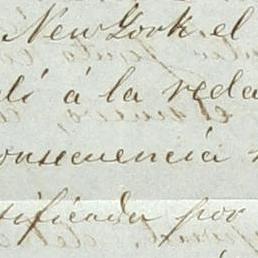 New York el
á la reda
onsecuencia
sificada por